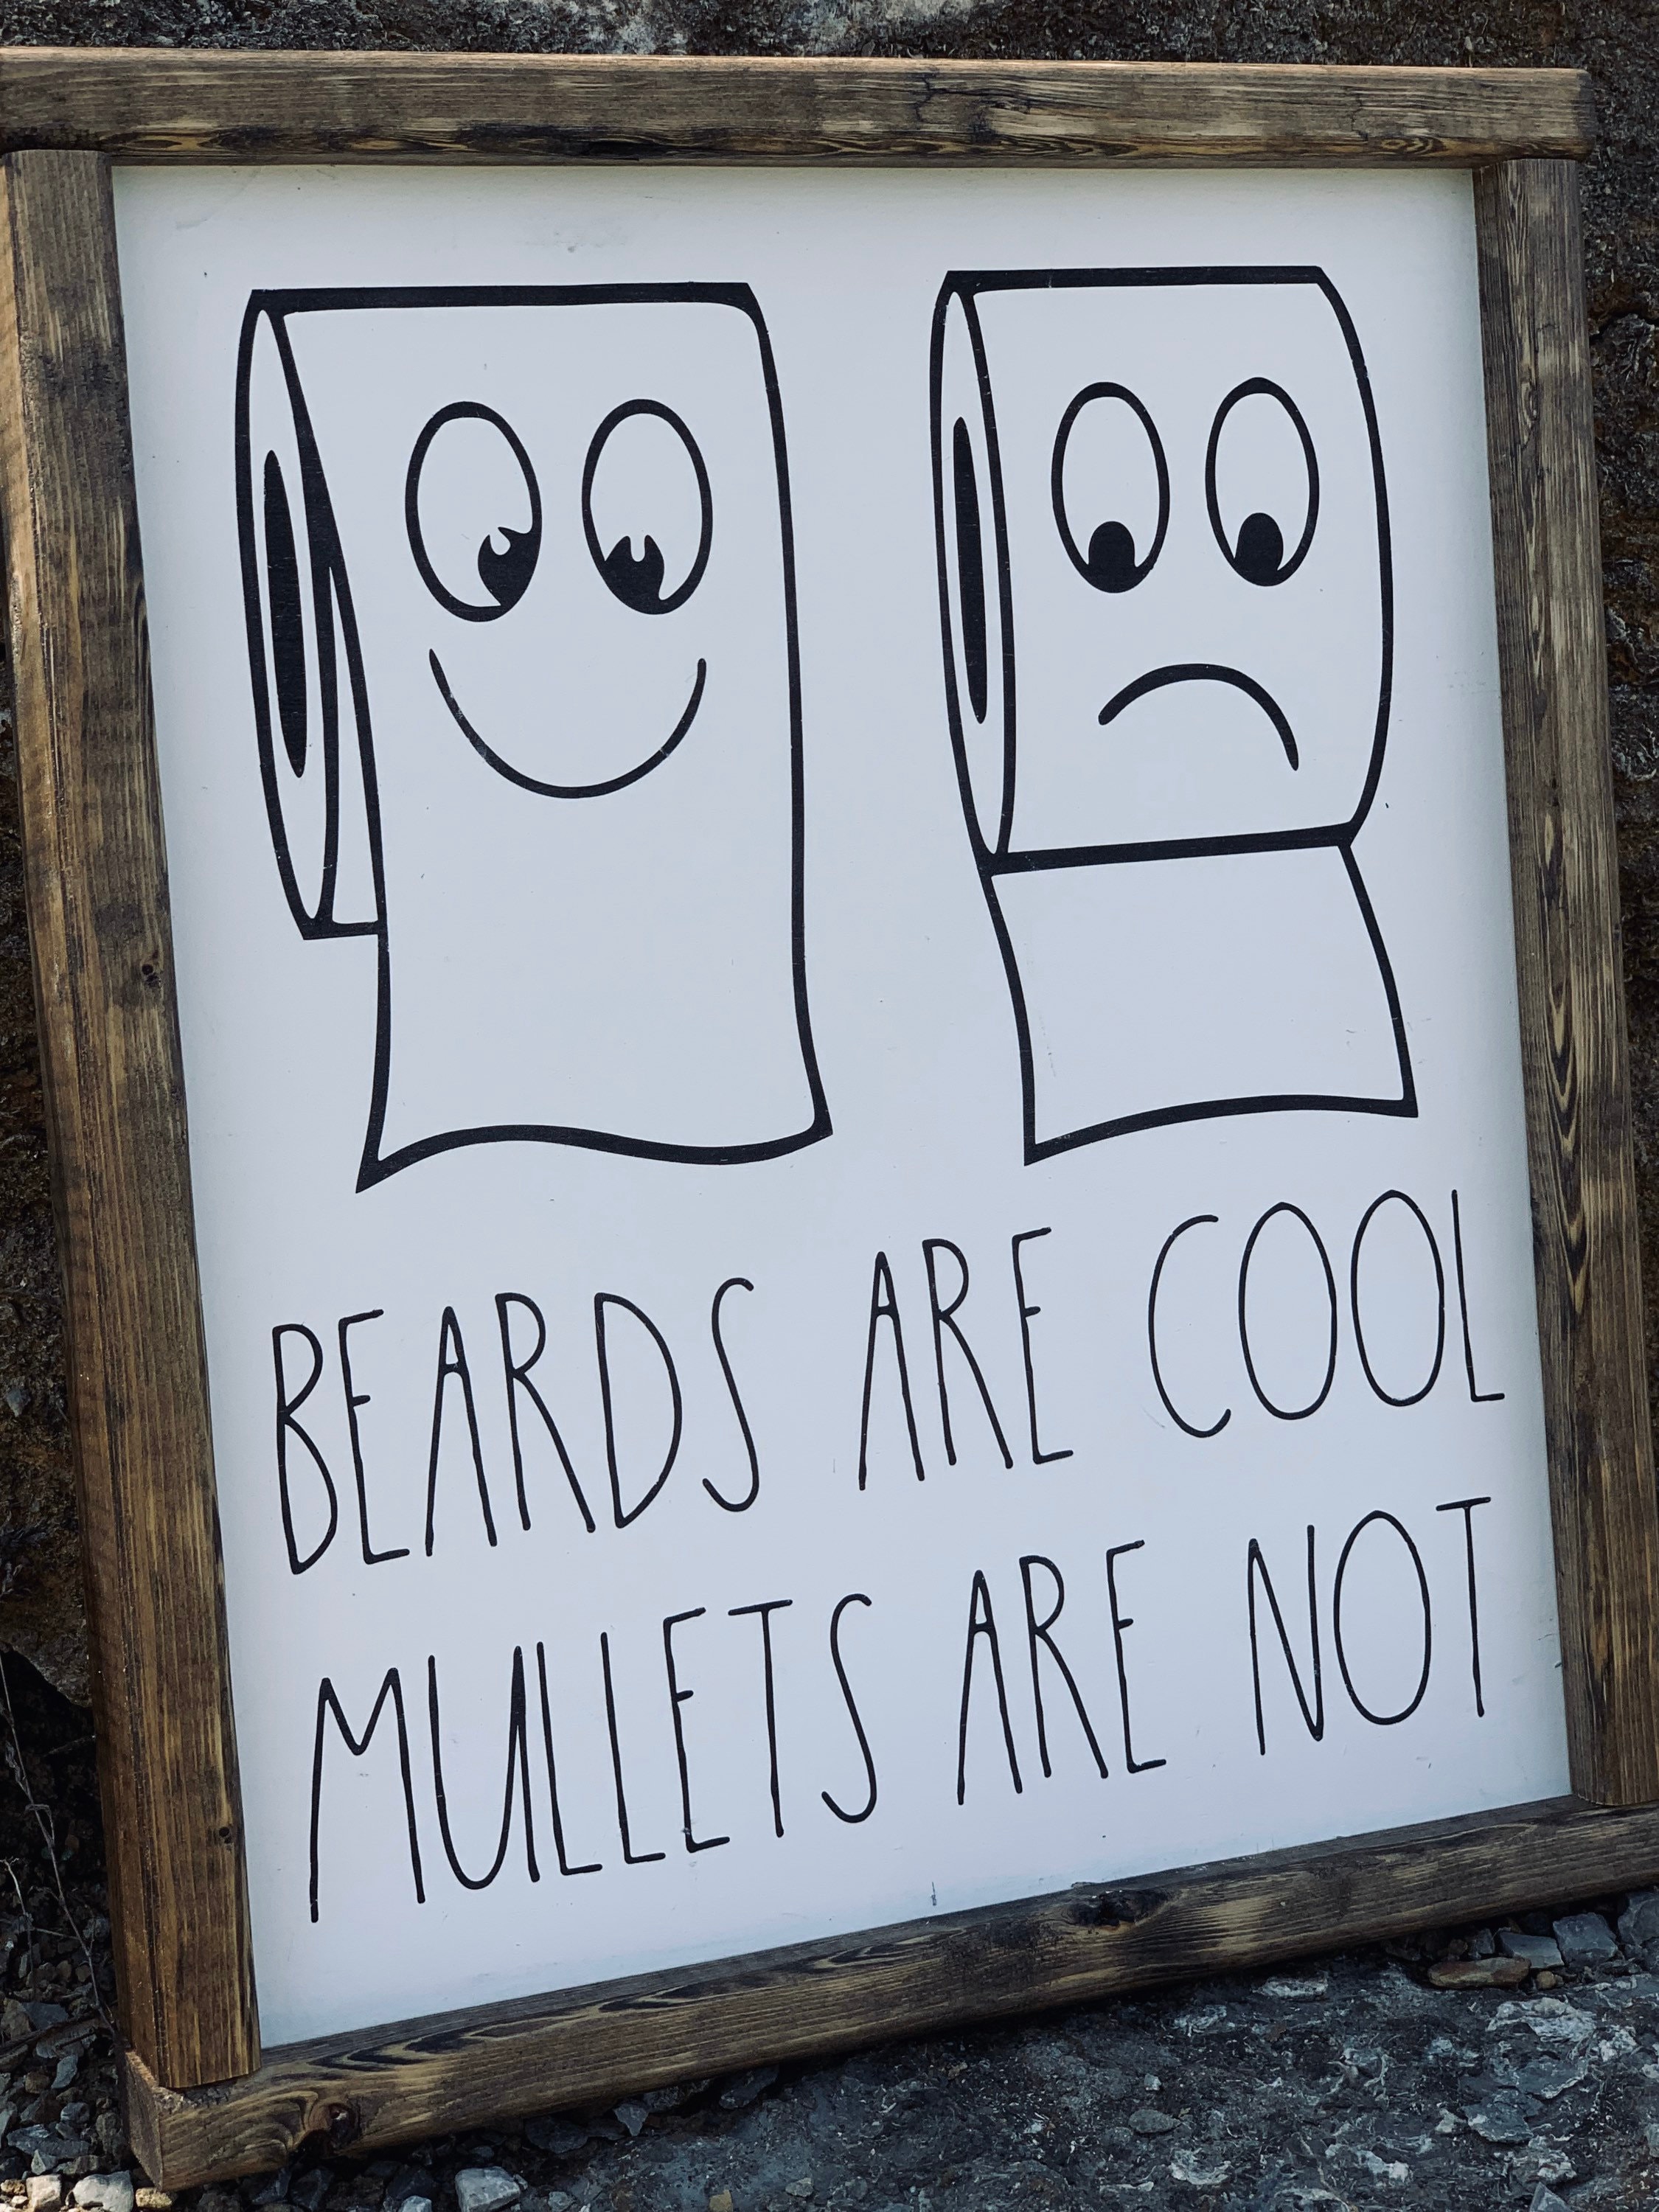 BEARDS ARE COOL
MULLETS ARE NOT